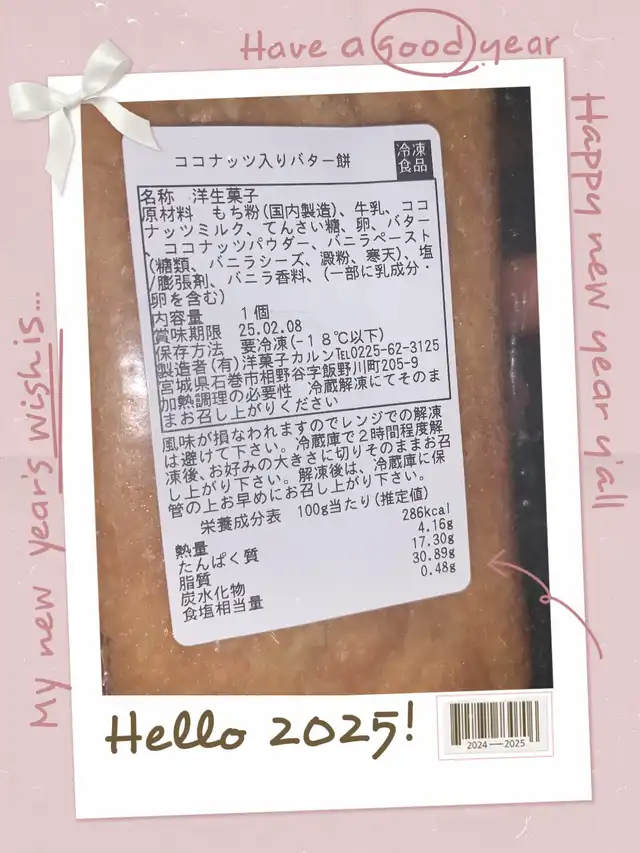 Have a good year
Happy new year y'all
My new year's wish is...
ココナッツ入りバター餅
冷凍
食品
名称 洋生菓子
原材料 もち粉(国内製造)、牛乳、ココ
ナッツミルク、てんさい糖、卵、バター
、ココナッツパウダー、バニラペースト
(糖類、バニラシーズ、澱粉、寒天)、塩
/膨張剤、バニラ香料、(一部に乳成分・
卵を含む)
内容量 1個
賞味期限 25.02.08
保存方法 要冷凍(-18℃以下)
製造者(有)洋菓子カルン℡0225-62-3125
宮城県石巻市相野谷字飯野川町205-9
加熱調理の必要性 冷蔵解凍にてそのま
まお召し上がりください
風味が損なわれますのでレンジでの解凍
は避けて下さい。冷蔵庫で2時間程度解
凍後、お好みの大きさに切りそのままお召
し上がり下さい。解凍後は、冷蔵庫に保
管の上お早めにお召し上がり下さい。
栄養成分表 100g当たり(推定値)
熱量 286kcal
たんぱく質 4.16g
脂質 17.30g
炭水化物 30.89g
食塩相当量 0.48g
Hello 2025!
2024—2025